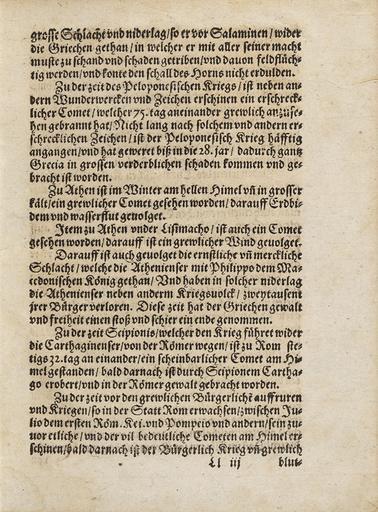 grosse Schlacht vnd niderlag/so er vor Salaminen/wider
die Griechen gethan/in welcher er mit aller seiner macht
muste zu schand vnd schaden getriben/vnd dauon feldflüch-
tig werden/vnd konte den schall des Horns nicht erdulden.
Zu der zeit des Peloponesischen Kriegs/ist neben an-
dern Wunderwercken vnd Zeichen erschinen ein erschreck-
licher Comet/welcher 75. tag aneinander grewlich anzuse-
hen gebrannt hat/Nicht lang nach solchem vnd andern er-
schrecklichen Zeichen/ist der Peloponesisch Krieg häfftig
angangen/vnd hat geweret biß in die 28. jar/dadurch gantz
Grecia in grossen verderblichen schaden kommen vnd ge-
bracht ist worden.
Zu Athen ist im Winter am hellen Himel vñ in grosser
kält/ein grewlicher Comet gesehen worden/darauff Erdbi-
dem vnd wasserflut geuolget.
Item zu Athen vnder Lisimacho/ist auch ein Comet
gesehen worden/darauff ist ein grewlicher Wind geuolget.
Darauff ist auch geuolget die ernstliche vñ merckliche
Schlacht/welche die Athenienser mit Philippo dem Ma-
cedonischen König gethan/Vnd haben in solcher niderlag
die Athenienser neben anderm Kriegsuolck/zweytausent
jrer Bürger verloren. Diese zeit hat der Griechen gewalt
vnd freiheit einen stoß vnd schier ein ende genommen.
Zu der zeit Scipionis/welcher den Krieg führet wider
die Carthaginenser/von der Römer wegen/ist zu Rom ste-
tigs 32. tag an einander/ein scheinbarlicher Comet am Hi-
mel gestanden/bald darnach ist durch Scipionem Cartha-
go erobert/vnd in der Römer gewalt gebracht worden.
Zu der zeit vor den grewlichen Bürgerlichē auffruren
vnd Kriegen/so in der Statt Rom erwachsen/zwischen Ju-
lio dem ersten Röm. Kei. vnd Pompeio vnd andern/sein zu-
uor etliche/vnd der vil bedeutliche Cometen am Himel er-
schinen/bald darnach ist der Bürgerlich Krieg vñ grewlich
Ll iij blut-